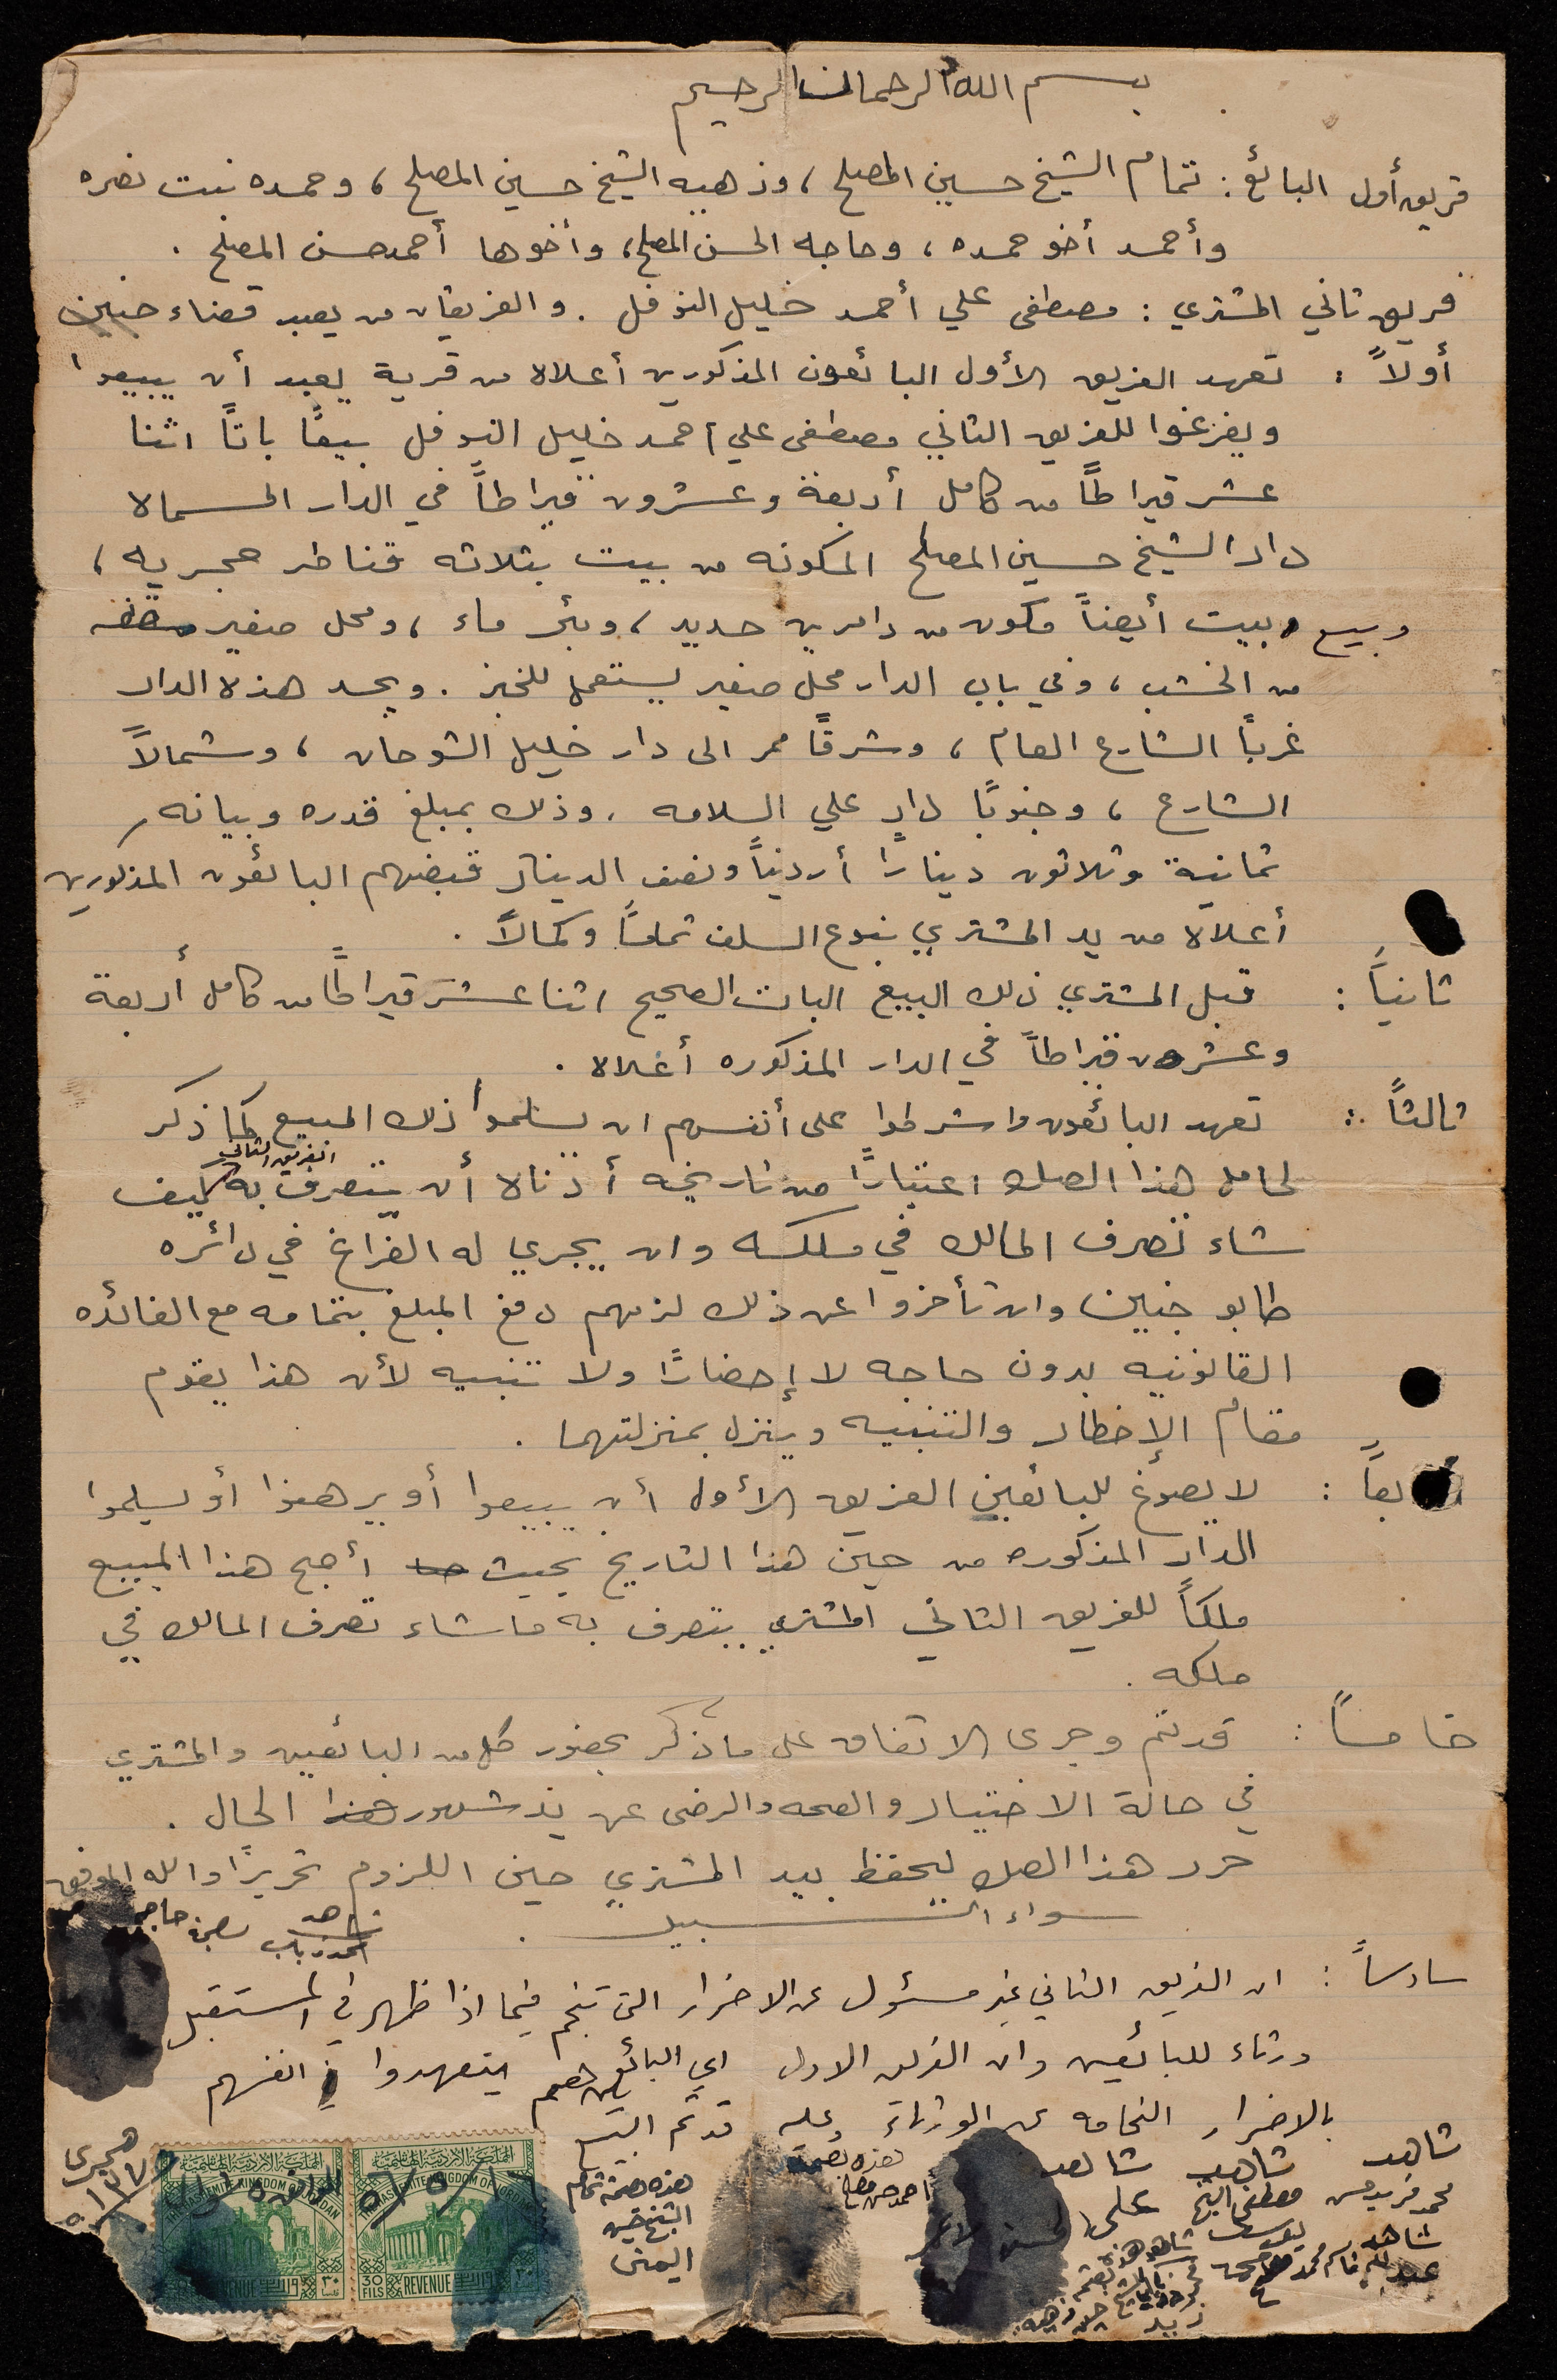 بسم الله الرحمان الرحيم
فريق أول البائع : تمام الشيخ حسين المصلح ، وذهبيه الشيخ حسين المصلح ، وحمده بنت نصره
وأحمد أخو حمده ، وحاجه الحسن المصلح ، وأخوها أحمد حسن المصلح .
فريق ثاني المشتري : مصطفى علي أحمد خليل النوفل . والفريقان من يعبد قضاء جنين
أولاً : تعهد الفريق الأول البائعون المذكورين أعلاه من قرية يعبد أن يبيعوا
ويفرغوا للفريق الثاني مصطفى علي احمد خليل النوفل بيعًا باتًا اثنا
عشر قيراطًا من كامل أربعة وعشرون قيراطاً في الدار المسماه
دار الشيخ حسين المصلح المكونه من بيت بثلاثه قناطر حجريه ،
وبيع بيت أيضاً مكون من دامرين حديد ، وبئر ماء ، ومحل صغير سقفه
من الخشب ، وفي باب الدار محل صغير يستعمل للخبز . ويحد هذه الدار
غربًا الشارع العام ، وشرقًا ممر الى دار خليل الشوحان ، وشمالاً
الشارع ، وجنوبًا دار علي السلامه . وذلك بمبلغ قدره وبيانه
ثمانية وثلاثون دينارًا أردنياً ونصف الدينار قبضهم البائعون المذكورين
أعلاه من يد المشتري بنوع السلف تمامًا وكمالاً .
ثانياً : قبل المشتري ذلك البيع البات الصحيح اثنا عشر قيراطًا من كامل أربعة
وعشرون قيراطاً في الدار المذكوره أعلاه .
ثالثاً : تعهد البائعون واشرطوا على أنفسهم ان يسلموا ذلك المبيع كما ذكر
الفريق الثاني
لحامل هذا الصك اعتبارًا من تاريخه أدناه أن يتصرف به كيف
شاء تصرف المالك في ملكه وان يجري له الفراغ في دائره
طابو جنين وان تأخروا عن ذلك لزمهم دفع المبلغ بتمامه مع الفائده
القانونيه بدون حاجه لا إحضارًا ولا تنبيه لأن هذا يقوم
مقام الإخطار والتنبيه وينزل بمنزلتهما .
رابعاً : لا يصوغ للبائعين الفريق الأول أن يبيعوا أو يرهنوا أو يسلموا
الدار المذكوره من حين هذا التاريخ بحيث أصبح هذا المبيع
ملكاً للفريق الثاني المشتري يتصرف به ما شاء تصرف المالك في
ملكه .
خامساً : قد تم وجرى الاتفاق على ما ذكر بحضور كل من البائعين والمشتري
في حالة الاختيار والصحه والرضى عن يد شهود هذا الحال .
حرر هذا الصك ليحفظ بيد المشتري حين اللزوم تحريرًا والله الموفق
سواء السبيل .
شاهد
بصمة حاجه
سادساً : ان الفريق الثاني غير مسئول عن الاضرار التي تنجم فيما اذا ظهر في المستقبل
ورثاء للبائعين وان الفريق الاول اي البائعين هم يتعهدوا في انفسهم
بالاضرار الناجمه عن الورثاء وعليه قد تم البيع
شاهد
محمد فريد حسن
شاهد
مصطفى الشيخ
يوسف
شاهد
علي
شاهد
هذه بصمة
أحمد حسن مصلح
هذه بصمة تمام
الشيخ حسين
اليمنى
هجري
الموافق
١٦/٥/٥٦
المملكة الأردنية الهاشمية
THE HASHEMITE KINGDOM OF JORDAN
30
FILS
REVENUE
٣٠
المملكة الأردنية الهاشمية
THE HASHEMITE KINGDOM OF JORDAN
REVENUE
٣٠